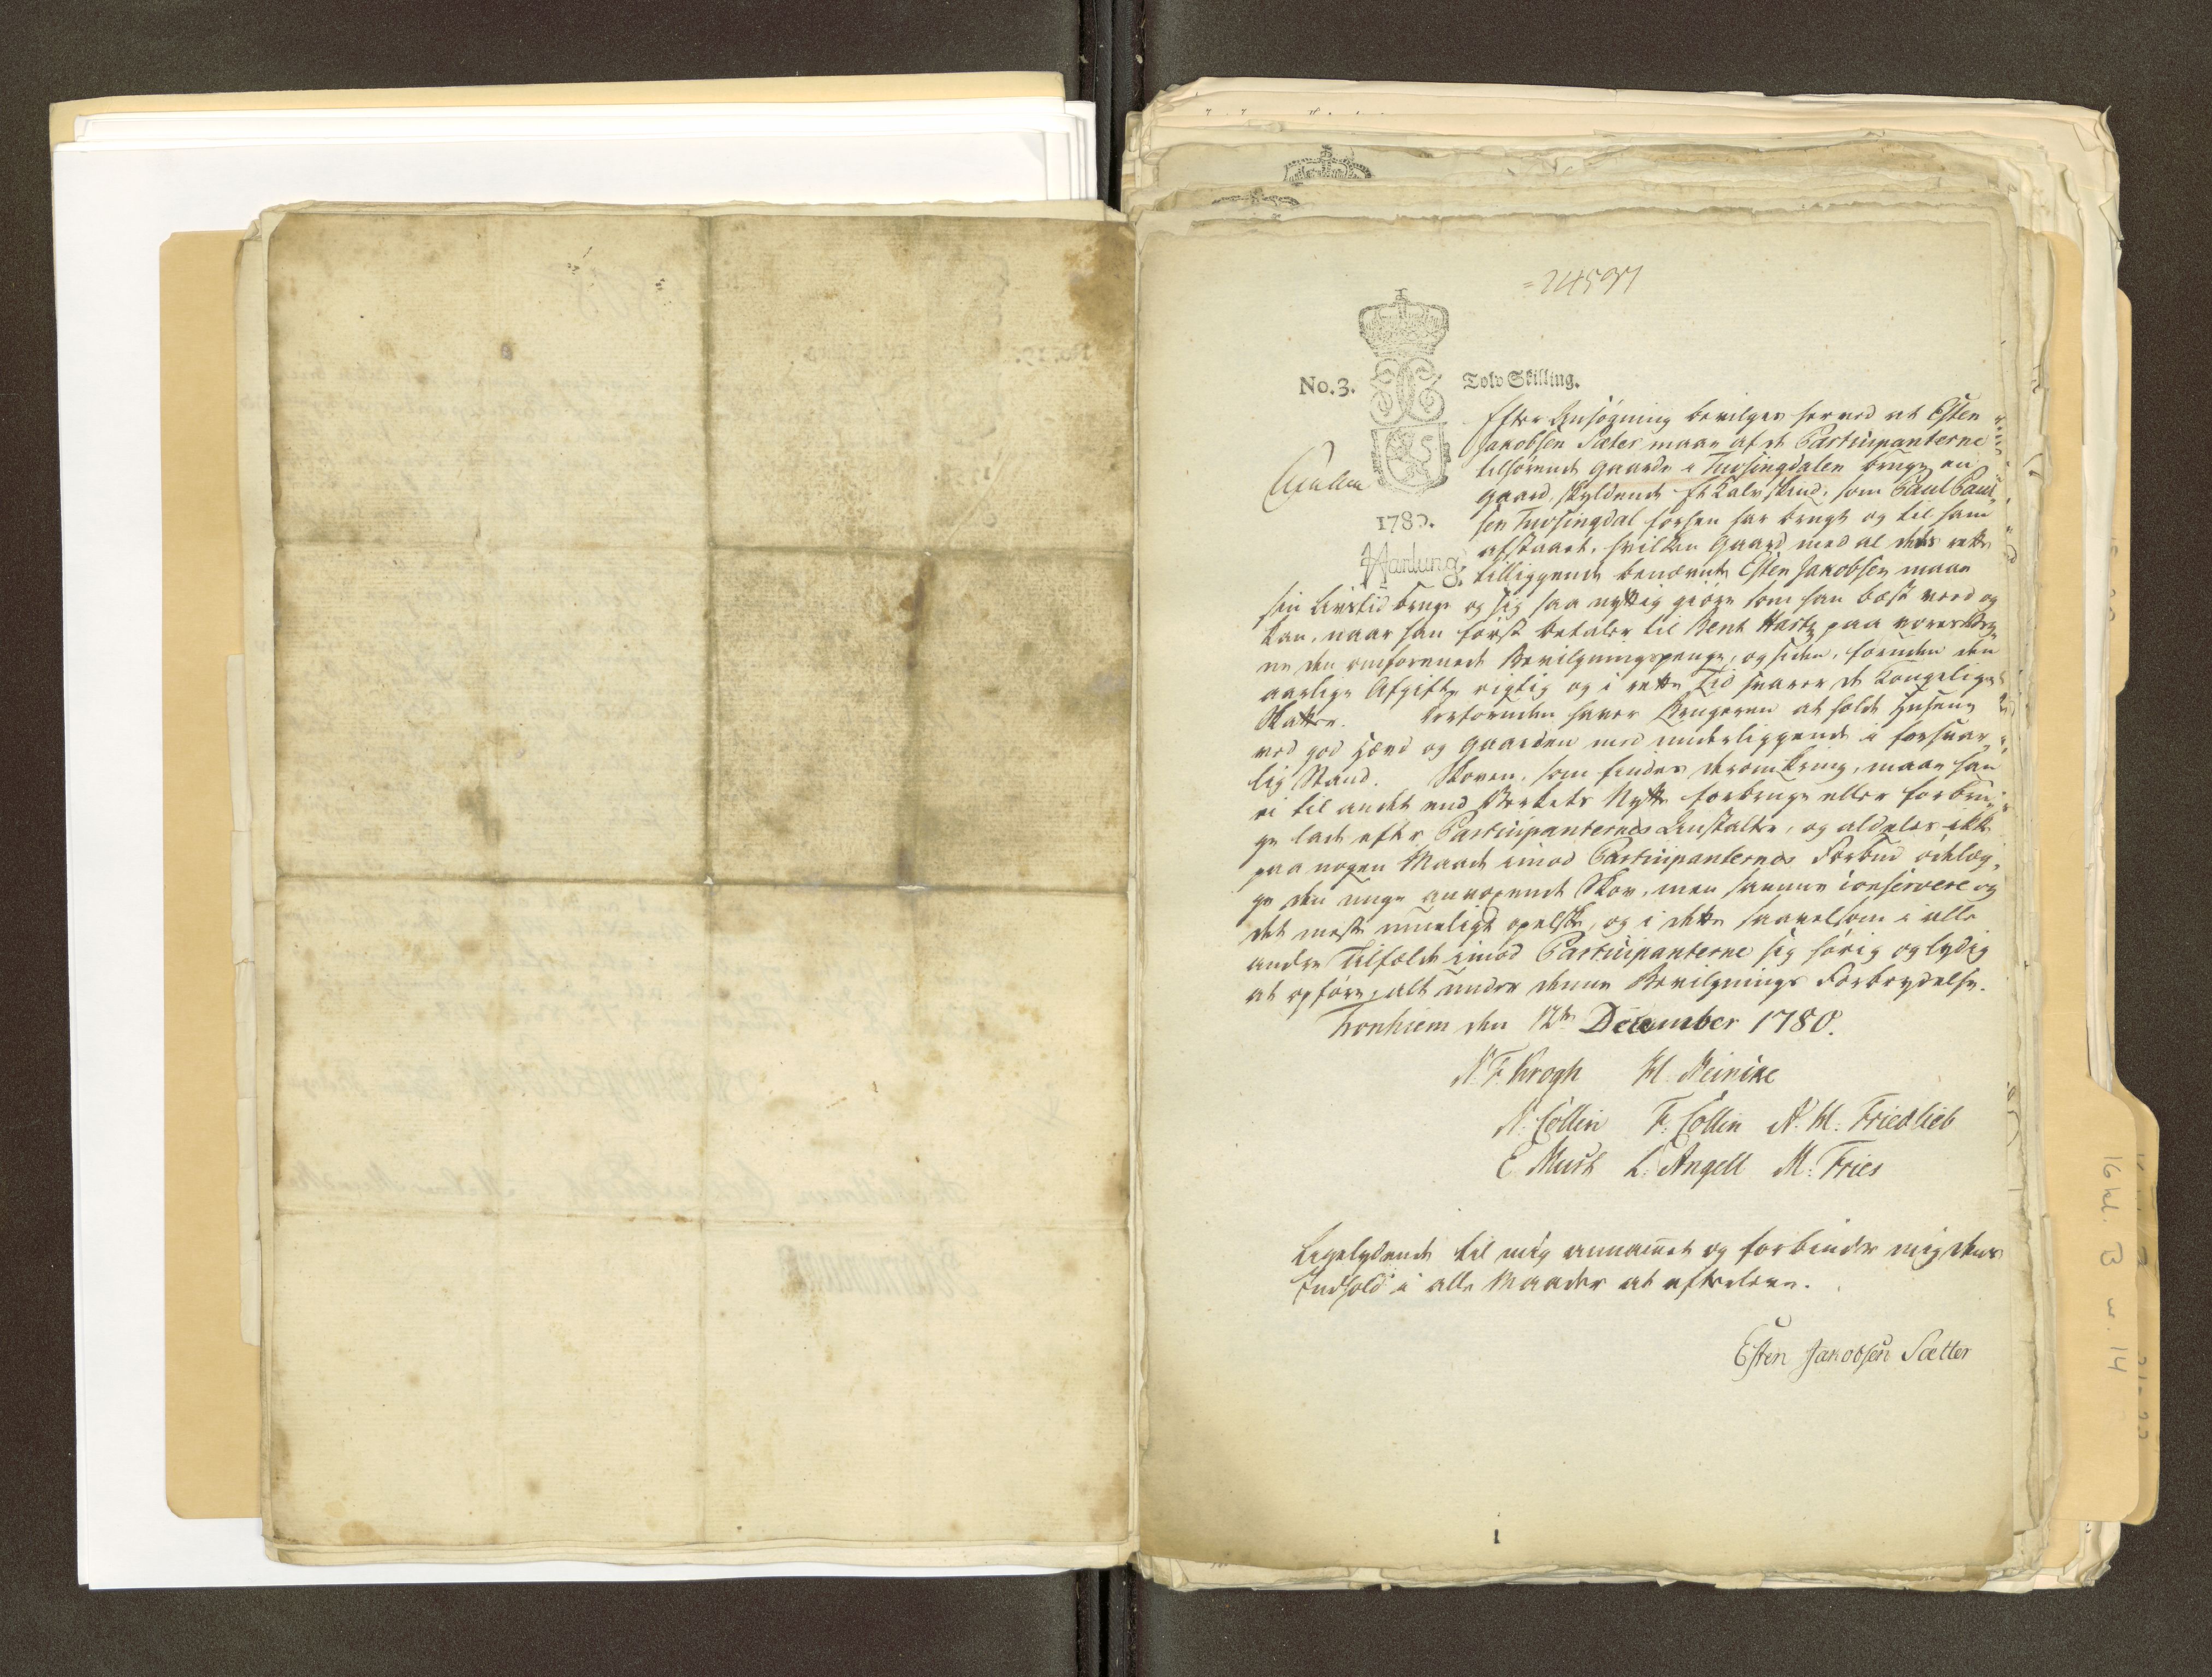 =24597
No. 3.
Tolv Skilling.
Efter Ansögning bevilges herved at Esten
Jakobsen Sæter maae af de Participanterne
tilhörende Gaarde i Tufsingdalen bruge en
Gaard, skyldende et Kalvskind, som Paul Paul„
sen Tufsingdal forhen har brugt og til ham
1780.
afstaaet, hvilken Gaard med al dets rette
tilliggende benævnte Esten Jakobsen maae
sin Livstid bruge og sig saa nyttig giöre som han bæst veed og
kan, naar han först betaler til Bent Hartz paa vores Veg„
ne den omforenede Bevilgningspenge, og siden, foruden den
aarlige Afgift, rigtig og i rette Tid svarer de Kongelige
Skatter. Desforuden haver Brugeren at holde Husene
ved god Hævd og Gaarden med underliggende i forsvar„
lig Stand. Skoven, som findes deromkring, maae han
ei til andet end Verkets Nytte forbruge eller forbru„
ge lade efter Participanternes Anstalter, og aldeles ikke
paa nogen Maade imod Participanternes Forbud ödelæg„
ge den unge anvoxende Skov, men samme conservere og
det meste mueligt opelske, og i dette saavelsom i alle
andre Tilfælde imod Participanterne sig hörig og lydig
at opföre, alt under denne Bevilgnings Forbrydelse.
Tronhiem den 12te December 1780.
N. F. Krogh H. Meincke
N. Collin F. Collin N. H. Friedlieb
E Must L. Angell M: Fries
Ligelydende til mig annammet og forbinder mig dens
Indhold i alle Maader at efterleve.
Esten Jakobsen Sætter
1
16 kl. B n. 14